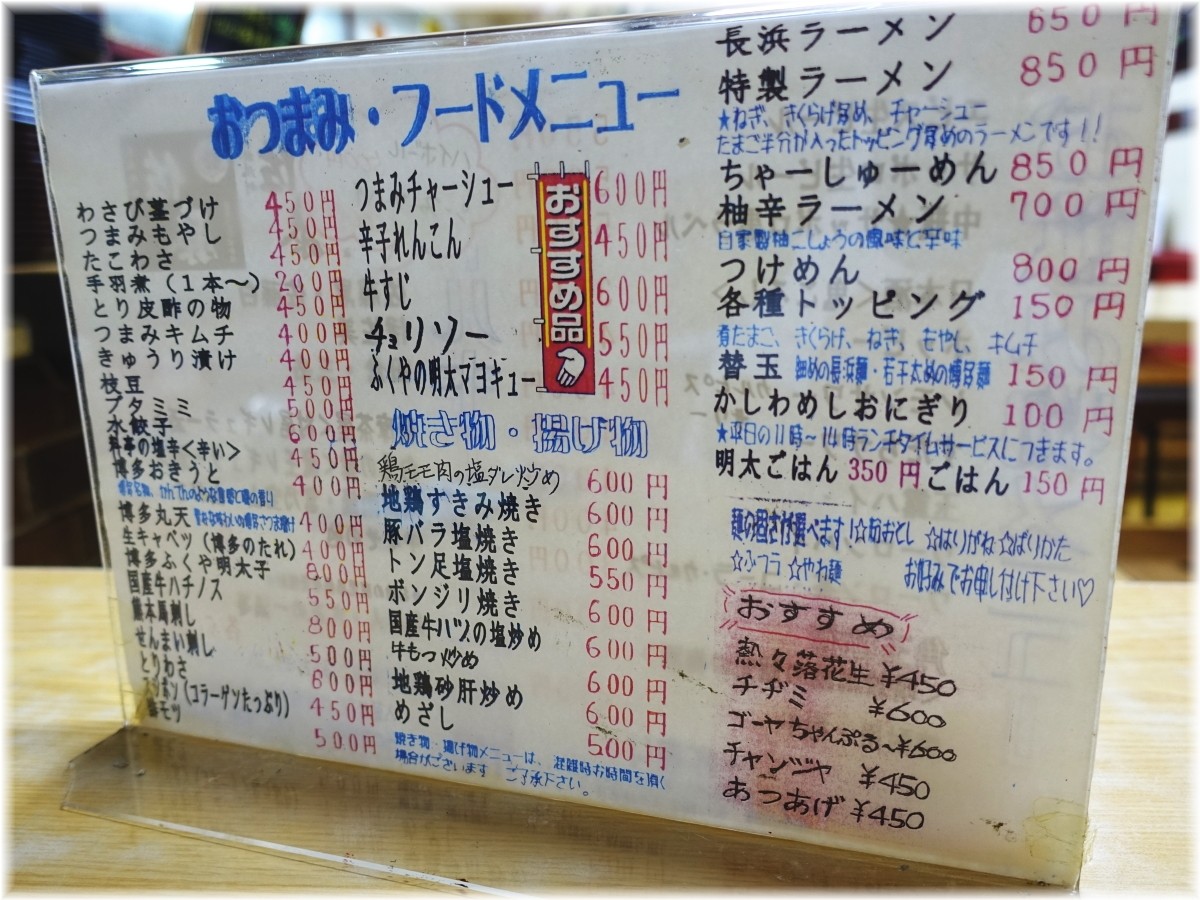 おつまみ・フードメニュー
わさび茎づけ 450円
つまみもやし 450円
たこわさ 450円
手羽煮(1本〜) 200円
とり皮酢の物 450円
つまみキムチ 400円
きゅうり漬け 400円
枝豆 450円
ブタミミ 500円
水餃子 600円
料亭の塩辛<辛い> 450円
博多おきうと 400円
博多丸天 400円
生キャベツ(博多のたれ) 400円
博多ふくや明太子 800円
国産牛ハチノス 550円
熊本馬刺し 800円
せんまい刺し 500円
とりわさ 600円
(コラーゲンたっぷり) 450円
モツ 500円
つまみチャーシュー 600円
辛子れんこん 450円
牛すじ 600円
チョリソー 550円
ふくやの明太マヨキュー 450円
おすすめ品
焼き物・揚げ物
鶏モモ肉の塩ダレ炒め 600円
地鶏すきみ焼き 600円
豚バラ塩焼き 600円
トン足塩焼き 550円
ボンジリ焼き 600円
国産牛ハツの塩炒め 600円
牛もつ炒め 600円
地鶏砂肝炒め 600円
めざし 500円
焼き物・揚げ物メニューは、混雑時お時間を頂く
場合がございます ご了承下さい。
長浜ラーメン 650円
特製ラーメン 850円
★ねぎ、きくらげ多め、チャーシュー
たまご半分が入ったトッピング多めのラーメンです!!
ちゃーしゅーめん 850円
柚辛ラーメン 700円
自家製柚こしょうの風味と辛味
つけめん 800円
各種トッピング 150円
煮たまご、きくらげ、ねぎ、もやし、キムチ
替玉 細めの長浜麺・若干太めの博多麺 150円
かしわめしおにぎり 100円
★平日の11時〜14時ランチタイムサービスにつきます。
明太ごはん 350円 ごはん 150円
麺の固さが選べます!☆粉おとし ☆はりがね☆ばりかた
☆ふつう ☆やわ麺 お好みでお申し付け下さい♡
おすすめ
熱々落花生 ¥450
チヂミ ¥600
ゴーヤちゃんぷる〜¥600
チャンジャ ¥450
あつあげ ¥450